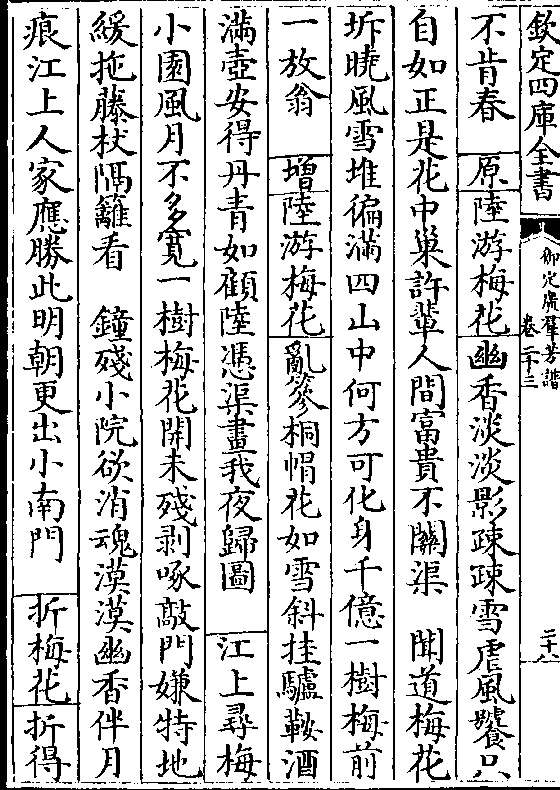 欽定四庫全書
御定廣羣芳譜
卷二十三
二十八
不肯春　原陸游梅花幽香淡淡影疎疎雪虐風饕只
自如正是花中巢許輩人間富貴不關渠　聞道梅花
坼曉風雪堆徧滿四山中何方可化身千億一樹梅前
一放翁　增陸游梅花亂篸桐帽花如雪斜挂驢鞍酒
滿壺安得丹青如顧陸憑渠畫我夜歸圖　江上尋梅
小園風月不多寛一樹梅花開未殘剥啄敲門嫌特地
緩拖藤杖隔籬看　鐘殘小院欲消魂漠漠幽香伴月
痕江上人家應勝此明朝更出小南門　折梅花折得